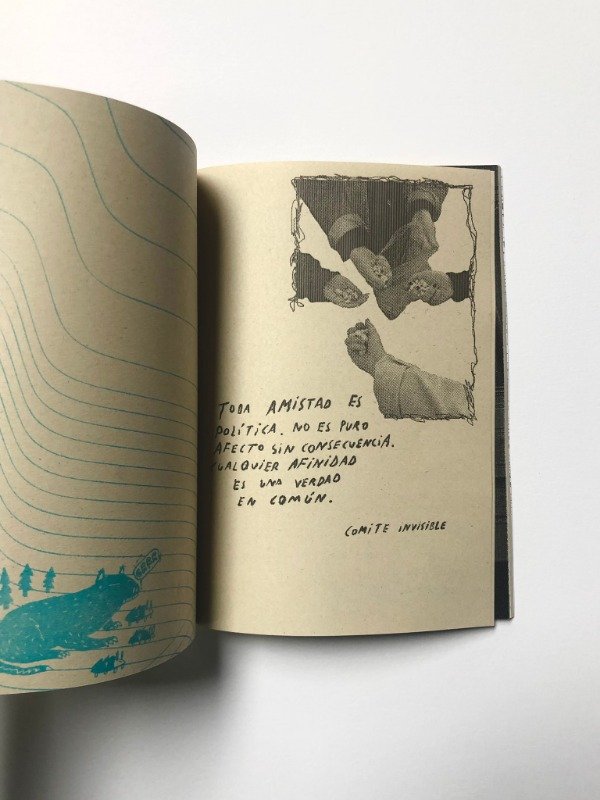 GRRR
TODA AMISTAD ES
POLÍTICA. NO ES PURO
AFECTO SIN CONSECUENCIA.
CUALQUIER AFINIDAD
ES UNA VERDAD
EN COMÚN.
COMITE INVISIBLE